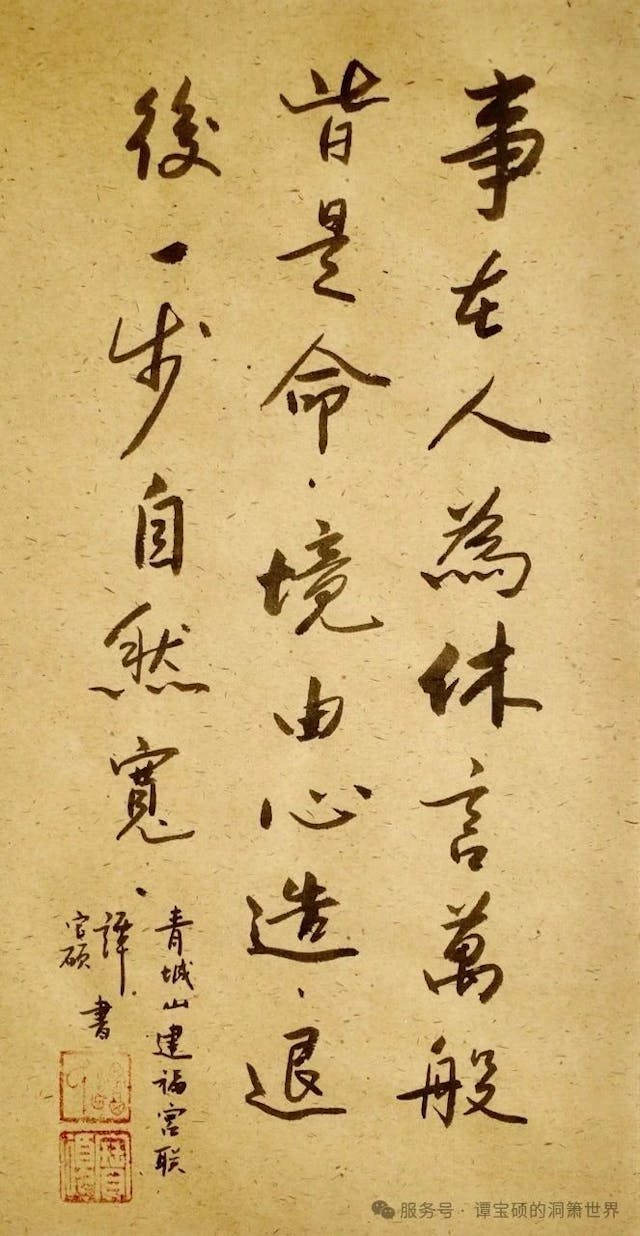 事在人為休言萬般
皆是命、境由心造、退
後一步自然寬、
青城山建福宮联
譚宝硕書
服务号·谭宝硕的洞箫世界